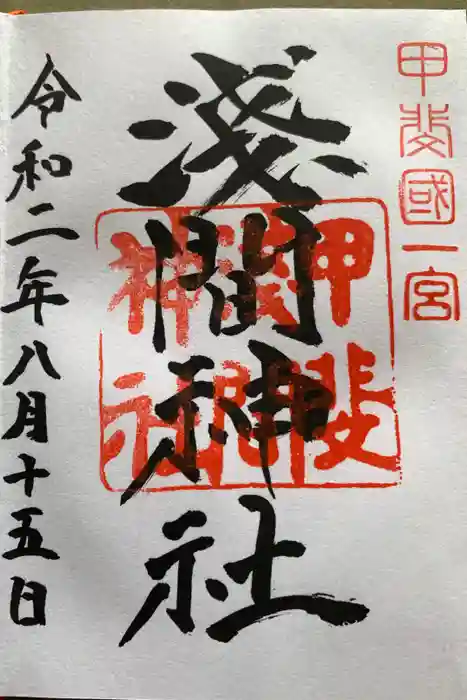 甲斐國一宮
淺間神社
甲斐
淺間
神社
令和二年八月十五日